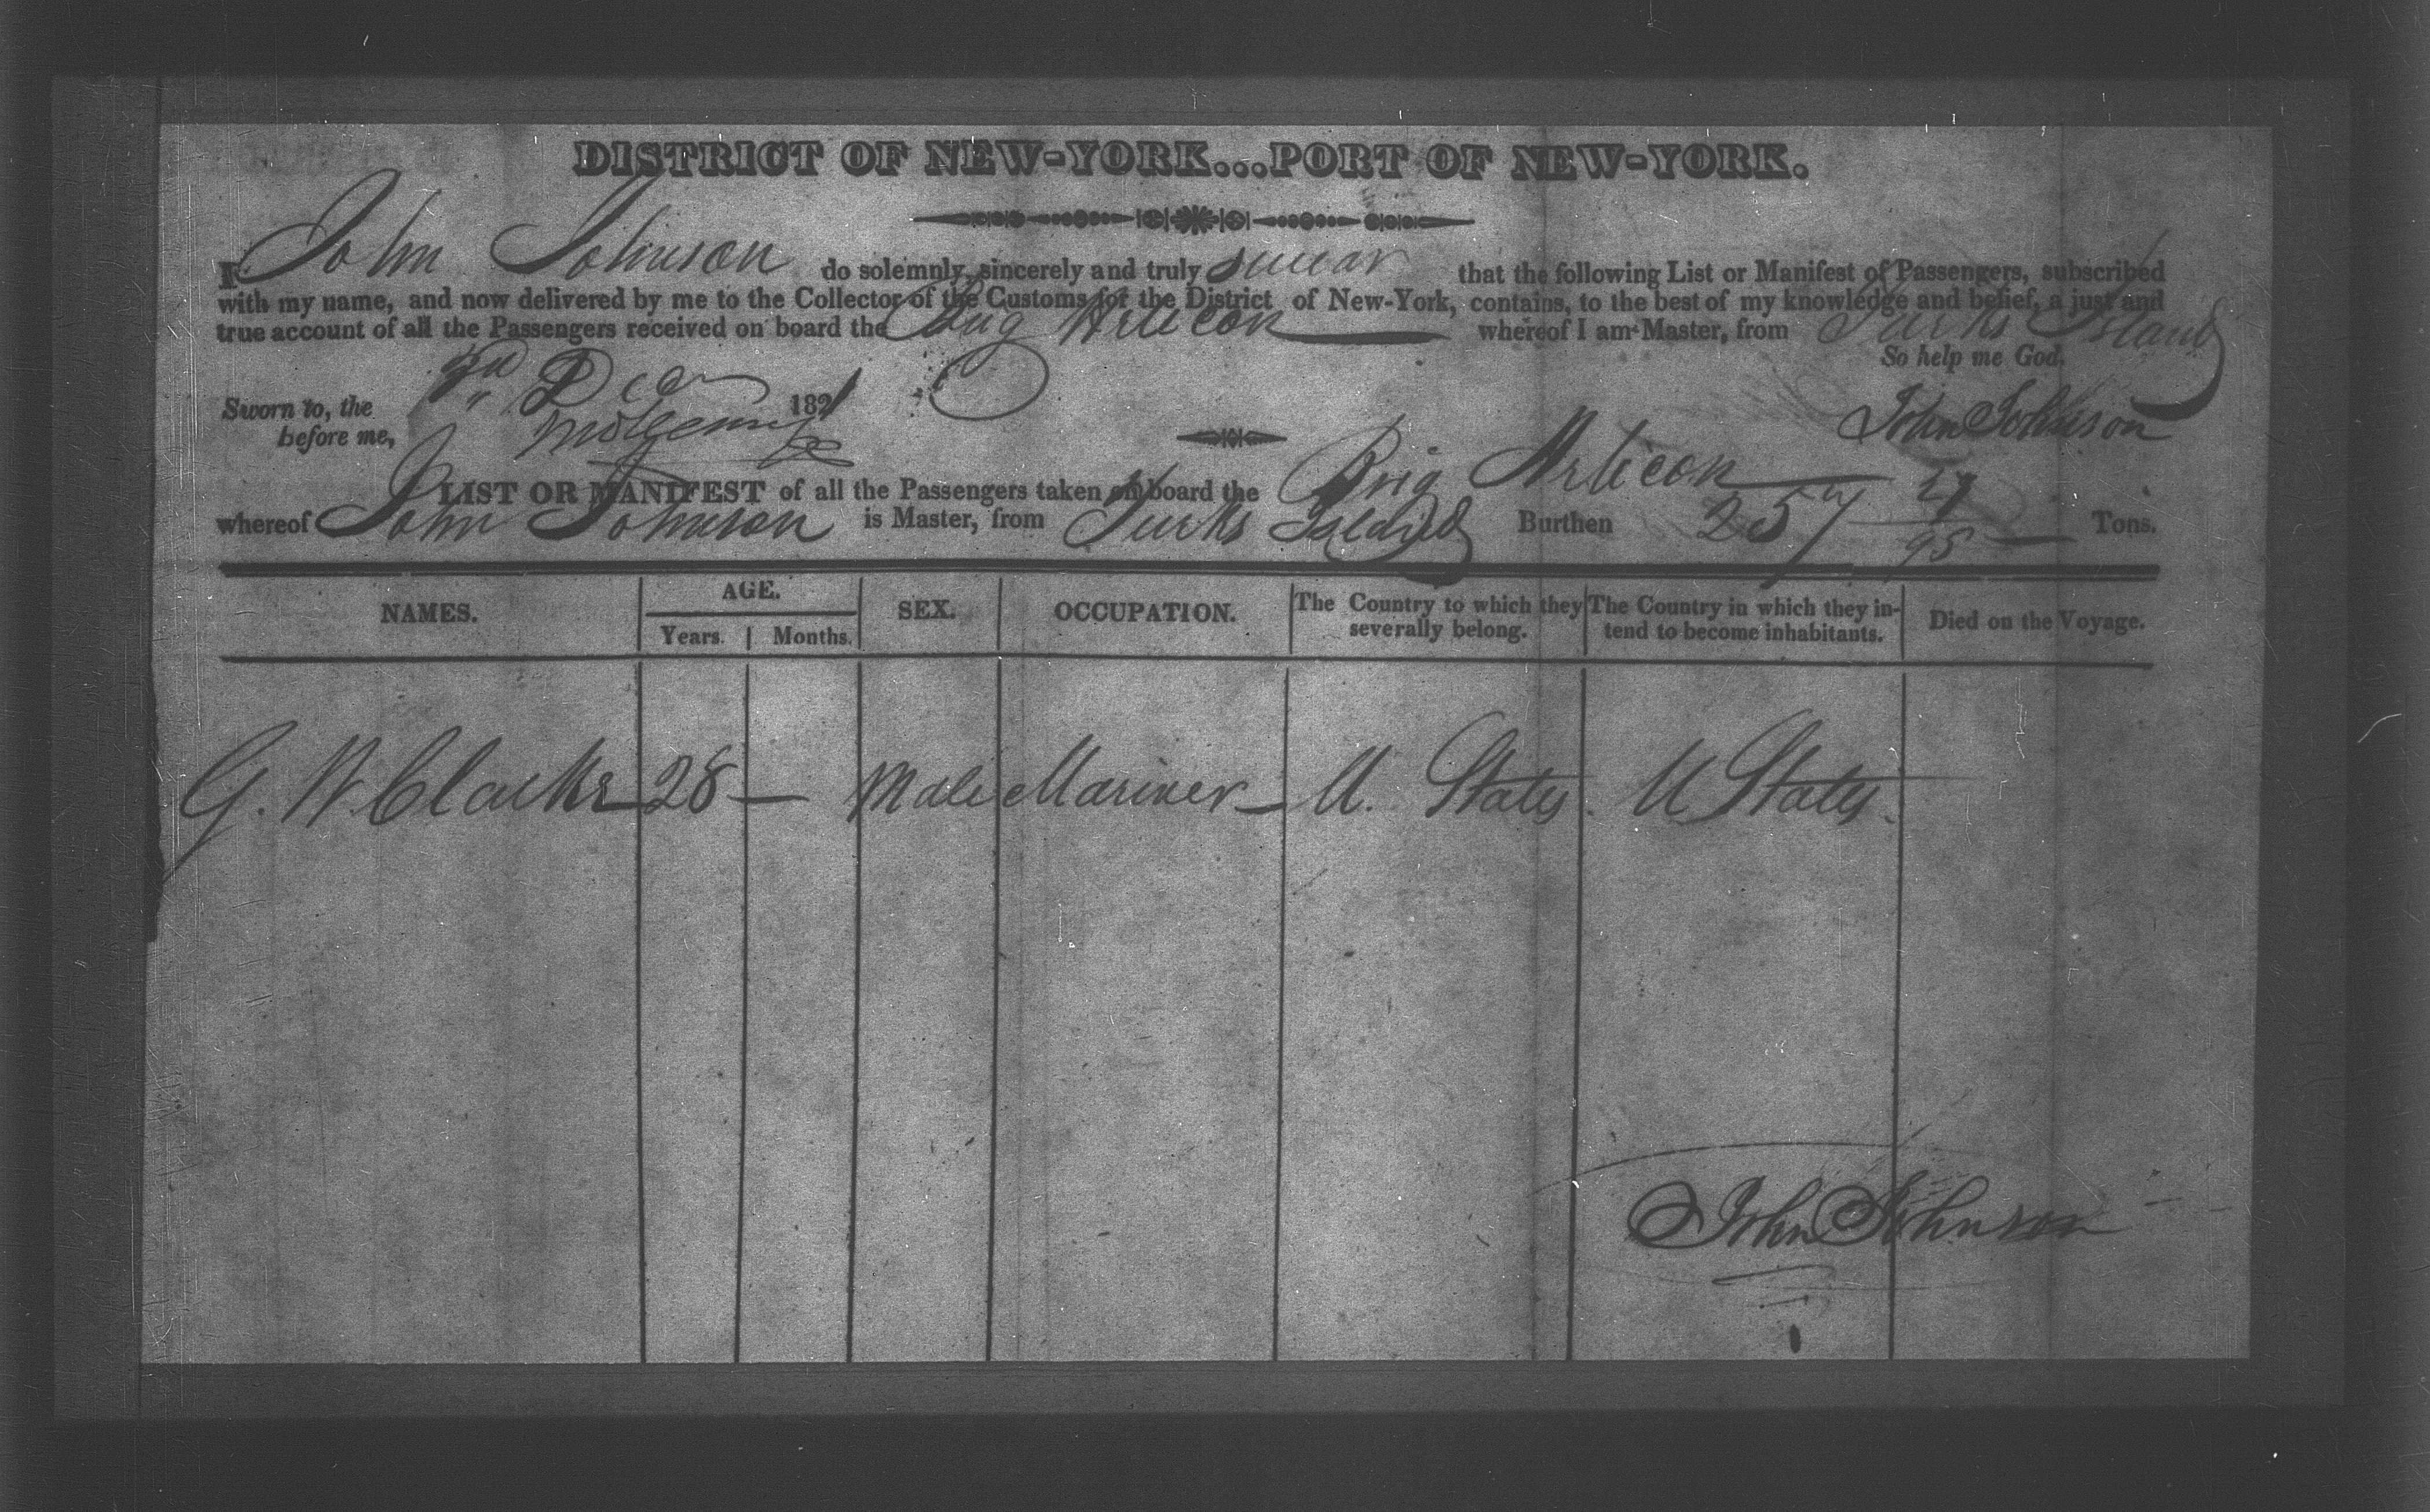 DISTRICT OF NEW-YORK...PORT OF NEW-YORK.
I, John Johnson do solemnly, sincerely and truly swear that the following List or Manifest of Passengers, subscribed
with my name, and now delivered by me to the Collector of the Customs for the District of New-York, contains, to the best of my knowledge and belief, a just and
true account of all the Passengers received on board the Brig whereof I am Master, from Turks Island
So help me God.
Sworn to, the Dec 182
before me,
John Johnson
LIST OR MANIFEST of all the Passengers taken on board the Brig
whereof John Johnson is Master, from Turks Island Burthen 257 Tons.
NAMES. AGE. SEX. OCCUPATION. The Country to which they severally belong. The Country in which they intend to become inhabitants. Died on the Voyage.
Years. Months.
G. W. Clarke 28 — Male Mariner — U. States. U States.
John Johnson